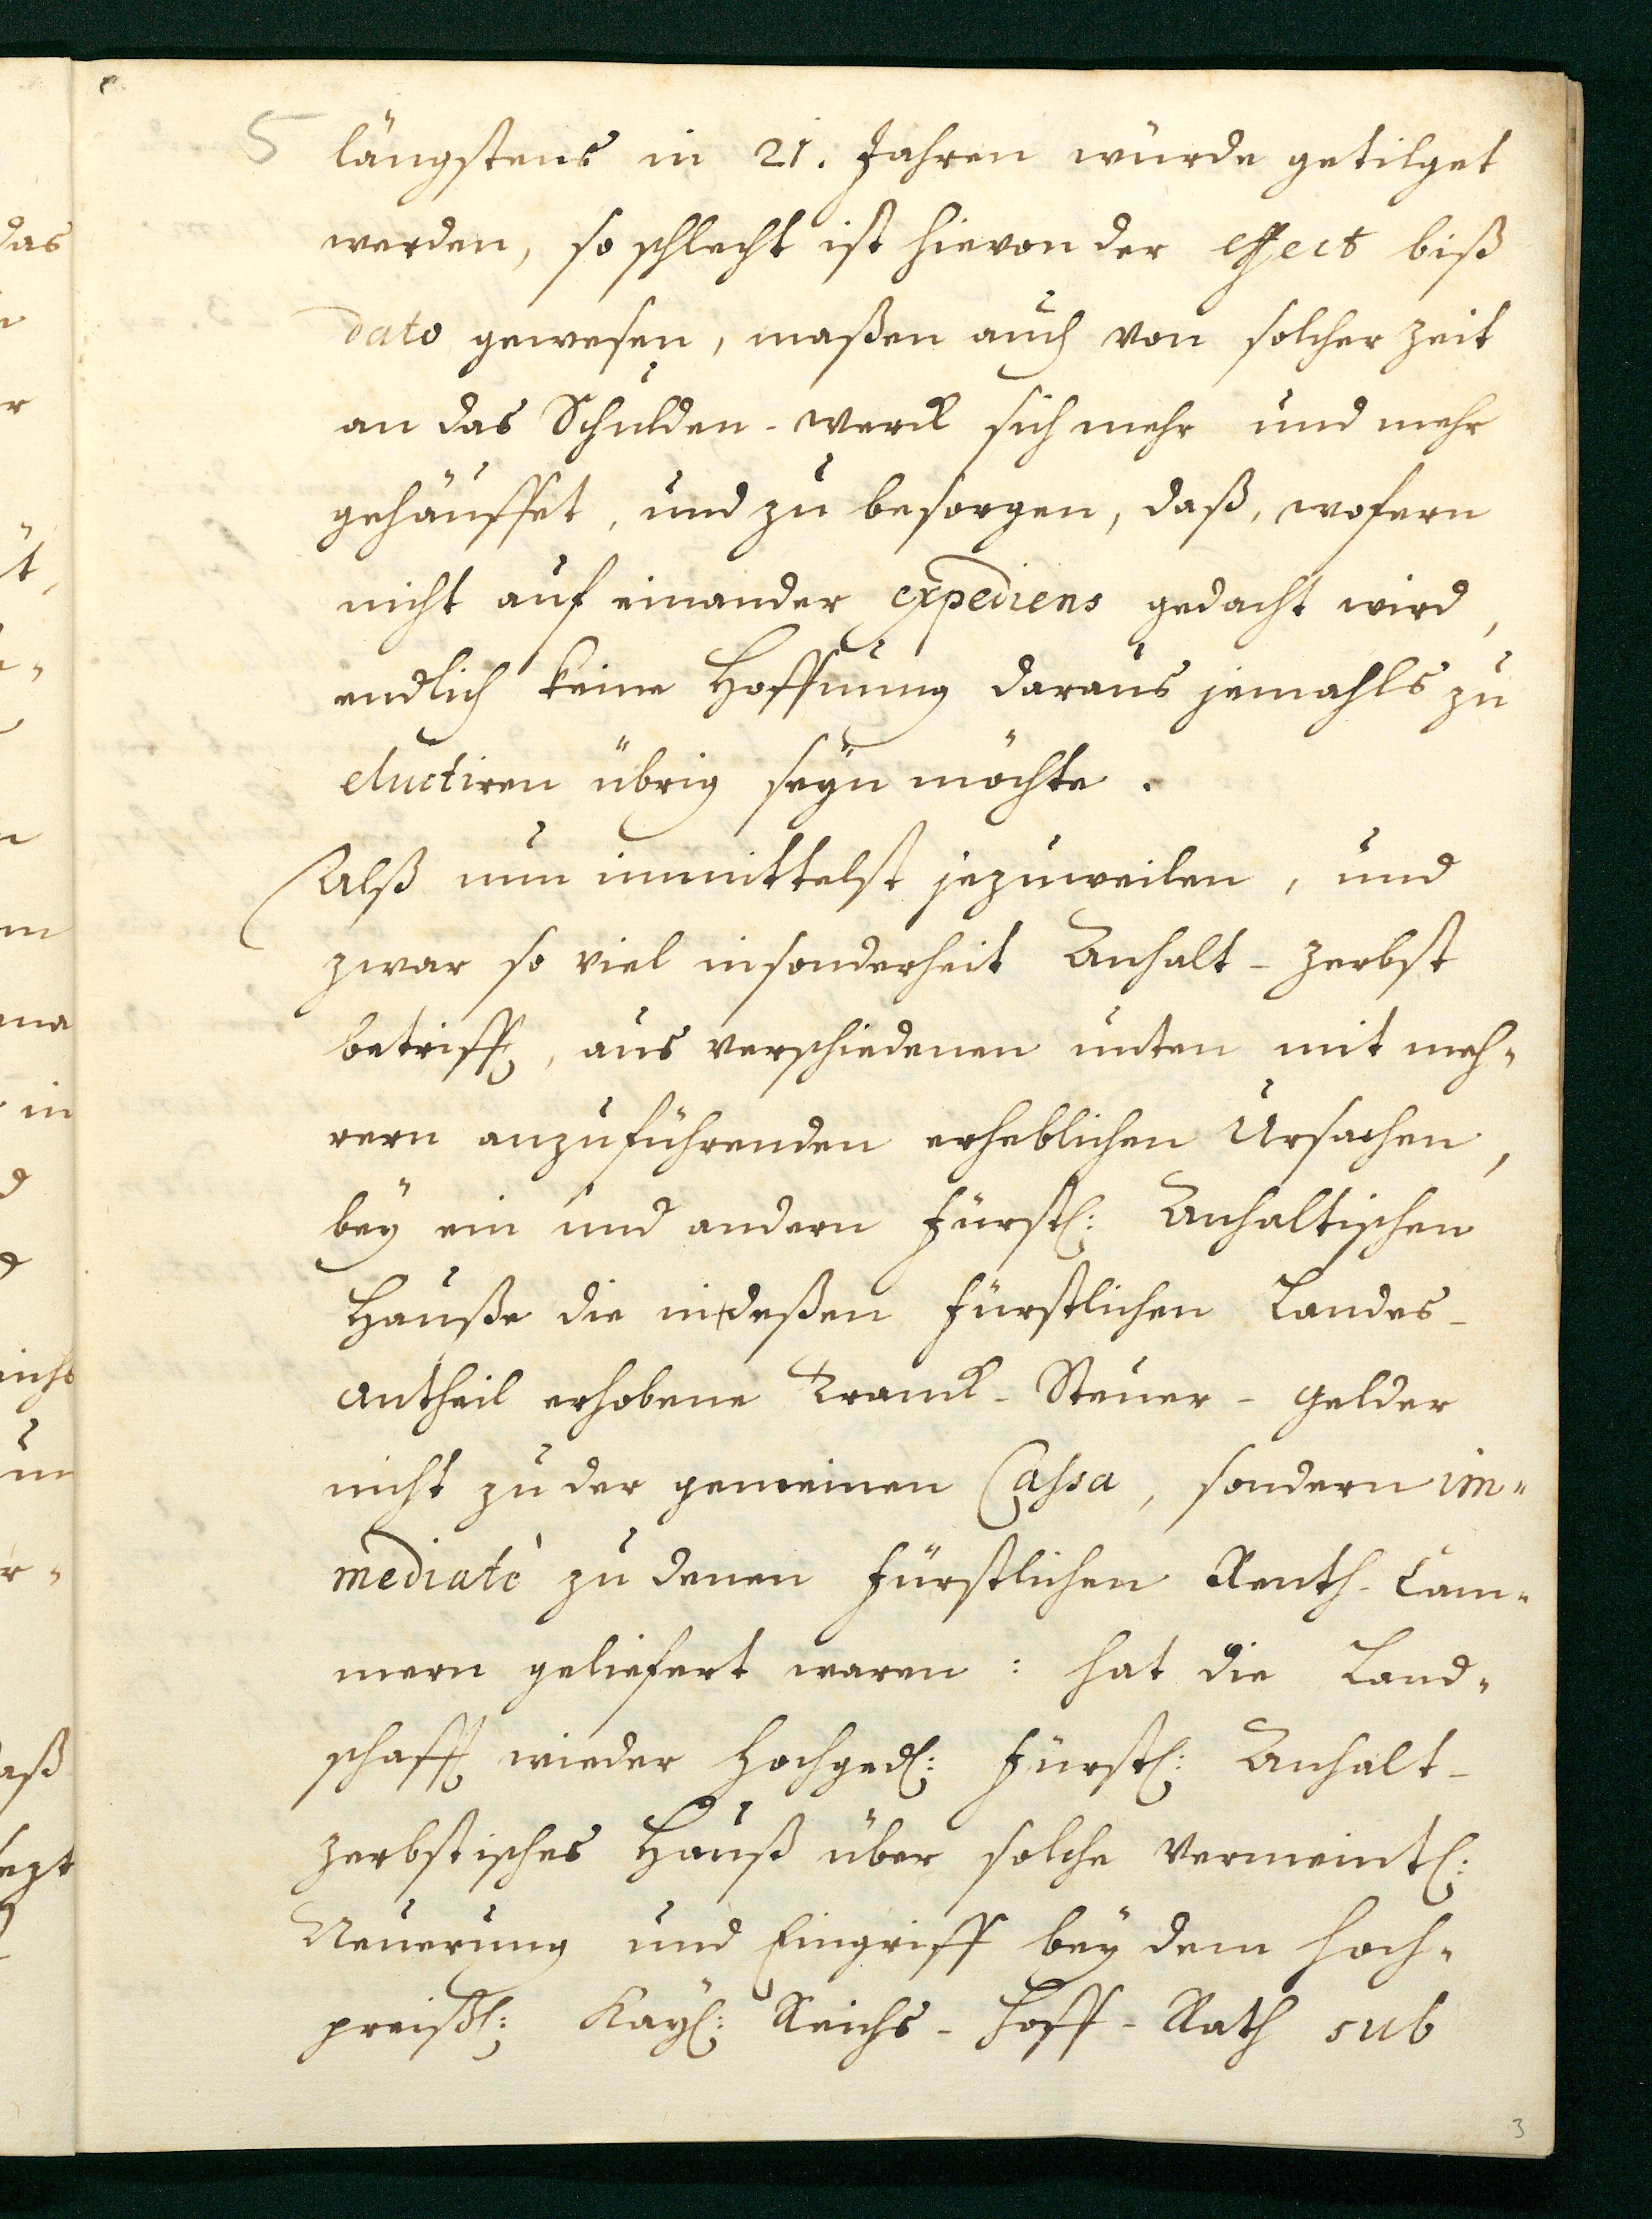 5
längstens in 21. Jahren würde getilget
werden, so schlecht ist hievon der effect biß
dato gewesen, maßen auch von solcher Zeit
an das Schulden-werck sich mehr und mehr
gehäuffet, und zu besorgen, daß, wofern
nicht auf einander expediens gedacht wird,
endlich keine Hoffnung daraus jemahls zu
eluctiren übrig seÿn möchte.
Alß nun immittelst jezuweilen, und
zwar so viel insonderheit Anhalt-Zerbst
betrifft, aus verschiedenen unten mit meh-
rern anzuführenden erheblichen Ursachen,
beÿ ein und andern Fürstl: Anhaltischen
Hauße die indeßen Fürstlichen Landes-
antheil erhobene Tranck-Steuer-gelder
nicht zu der gemeinen Cassa, sondern im-
mediatè zu denen Fürstlichen Renth-Cam-
mern geliefert waren: hat die Land-
schafft wieder Hochged: Fürstl: Anhalt-
Zerbstisches Hauß über solche vermeintl:
Neuerung und Eingriff beÿ dem Hoch-
preißl: Kaÿl: Reichs-Hoff-Rath sub
3
das
r
t,
in
d
aß